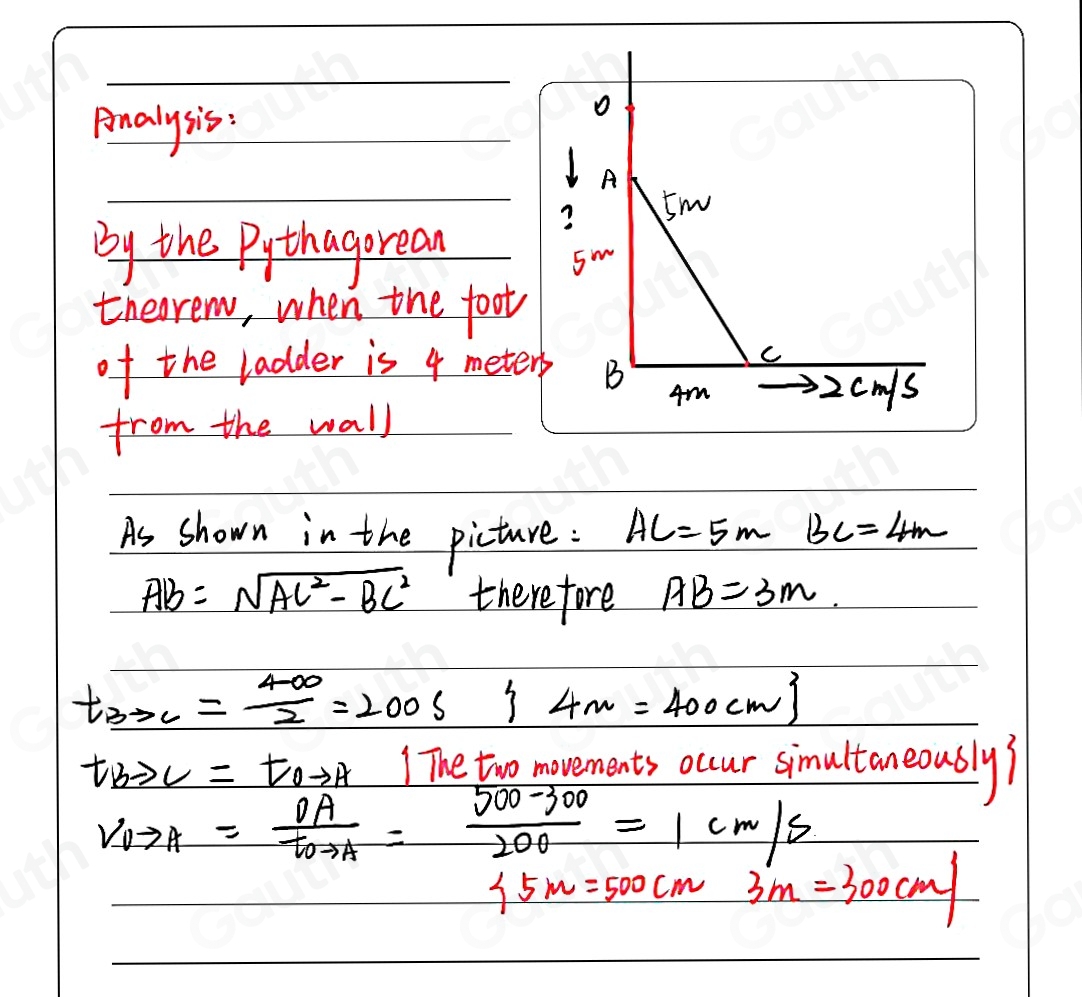 Analysis:
By the Pythagorean
theorem, when the foot
of the ladder is 4 meters
from the wall
O
A
↓
?
5m
5m
B
C
4m
→2cm/s
As shown in the picture: AC=5m BC=4m
AB=√AC²-BC² therefore AB=3m.
t_B→C = 400/2 = 200 S { 4m = 400cm }
t_B→C = t_O→A { The two movements occur simultaneously }
V_O→A = OA/t_O→A = 500-300/200 = 1 cm/s
{ 5m = 500cm 3m = 300cm }
Gauth